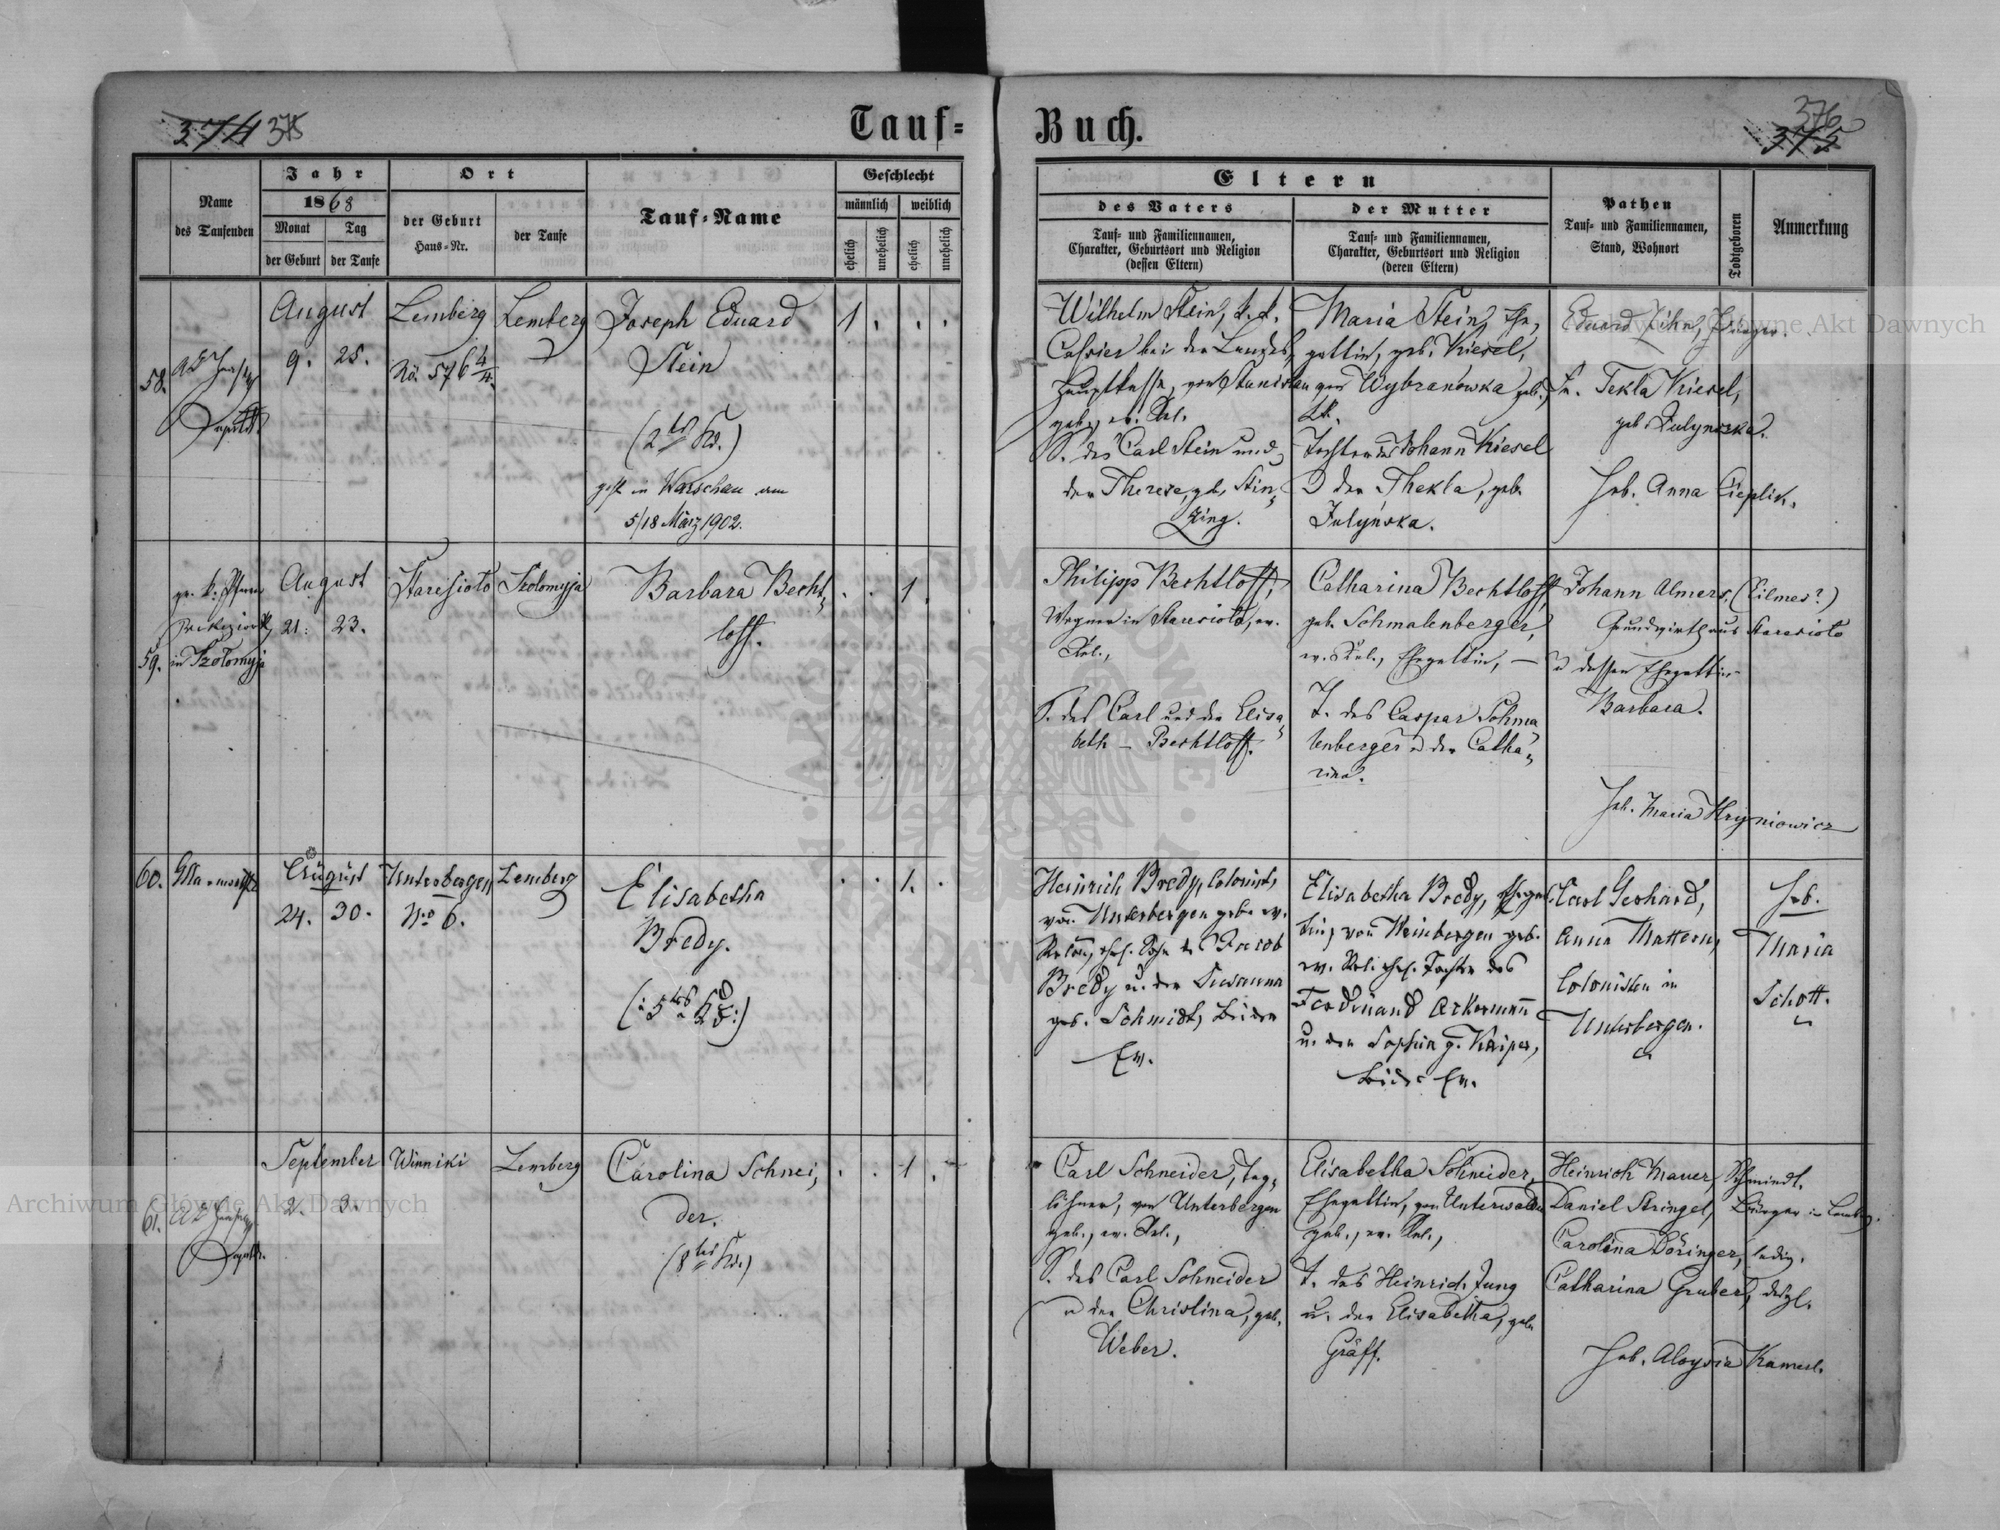 374 375
Tauf=
Buch.
376
375
Name
des Taufenden
Jahr
1868
Monat
Tag
der Geburt
der Taufe
Ort
der Geburt
Haus=Nr.
der Taufe
Tauf=Name
Geschlecht
männlich
weiblich
ehelich
unehelich
ehelich
unehelich
Eltern
des Vaters
Tauf= und Familiennamen,
Charakter, Geburtsort und Religion
(dessen Eltern)
der Mutter
Tauf= und Familiennamen,
Charakter, Geburtsort und Religion
(deren Eltern)
Pathen
Tauf= und Familiennamen,
Stand, Wohnort
Todtgeboren
Anmerkung
58.
August
9. 25.
Lemberg
No. 576 4/4.
Lemberg
Joseph Eduard
Stein
(2tes Kd.)
gest. in Warschau am
5/18 März 1902.
1 . . .
Wilhelm Stein, k. k.
Cassier bei der Landes=
hauptkasse, von Stanislau
geb., ev. Rel.
S. des Carl Stein und
der Therese, geb. Stin=
zing.
Maria Stein, Ehe=
gattin, geb. Kiesel,
von Wybranówka geb.,
Tochter des Johann Kiesel
u der Thekla, geb.
Julyńska.
Eduard
Tekla Kiesel,
geb. Julynska.
Heb. Anna Cieplik.
59.
gr. k. Pfarrer
in Tzolomyja
August
21. 23.
Staresioło
Tzolomyja
Barbara Becht=
loff.
. . 1 .
Philipp Bechtloff,
Wagner in Staresioło, ev.
Rel.,
S. des Carl und der Elisa=
beth – Bechtloff.
Catharina Bechtloff,
geb. Schmalenberger,
ev. Rel., Ehegattin, –
T. des Caspar Schma
lenberger u der Catha=
rina.
Johann Almers, (Filmes?)
Grundwirth aus Staresioło
u dessen Ehegattin
Barbara.
Heb. Maria Hryniowicz
60.
August
24. 30.
Unterbergen
No 6.
Lemberg
Elisabetha
Bredy.
(:5tes Kd:)
. . 1. .
Heinrich Bredy, Colonist,
von Unterbergen geb. ev.
Religion, ehel. Sohn des Jacob
Bredy u. der Susanna
geb. Schmidt, beide
Ev.
Elisabetha Bredy, Ehegat=
tin, von Weinbergen geb.
ev. Rel. ehel. Tochter des
Ferdinand Ackermann
u. der Sophia g. Kaiper,
beide Ev.
Carl Gerhard,
Anna Mattern,
Colonisten in
Unterbergen.
Heb.
Maria
Schott.
61.
September
2. 3.
Winniki
Lemberg
Carolina Schnei=
der.
(8tes Kd.)
. . 1 .
Carl Schneider, Tag=
löhner, von Unterbergen
geb., ev. Rel.,
S. des Carl Schneider
u der Christina, geb.
Weber.
Elisabetha Schneider,
Ehegattin, von Unterwalden
geb., ev. Rel.,
T. des Heinrich Jung
u. der Elisabetha, geb.
Gräff.
Heinrich Mauer,
Daniel Stringel, Bürger in Lemberg.
Carolina Döringer, ledig.
Catharina Gruber, desgl.
Heb. Aloysia Kamerl.
Archiwum Główne Akt Dawnych
Archiwum Główne Akt Dawnych